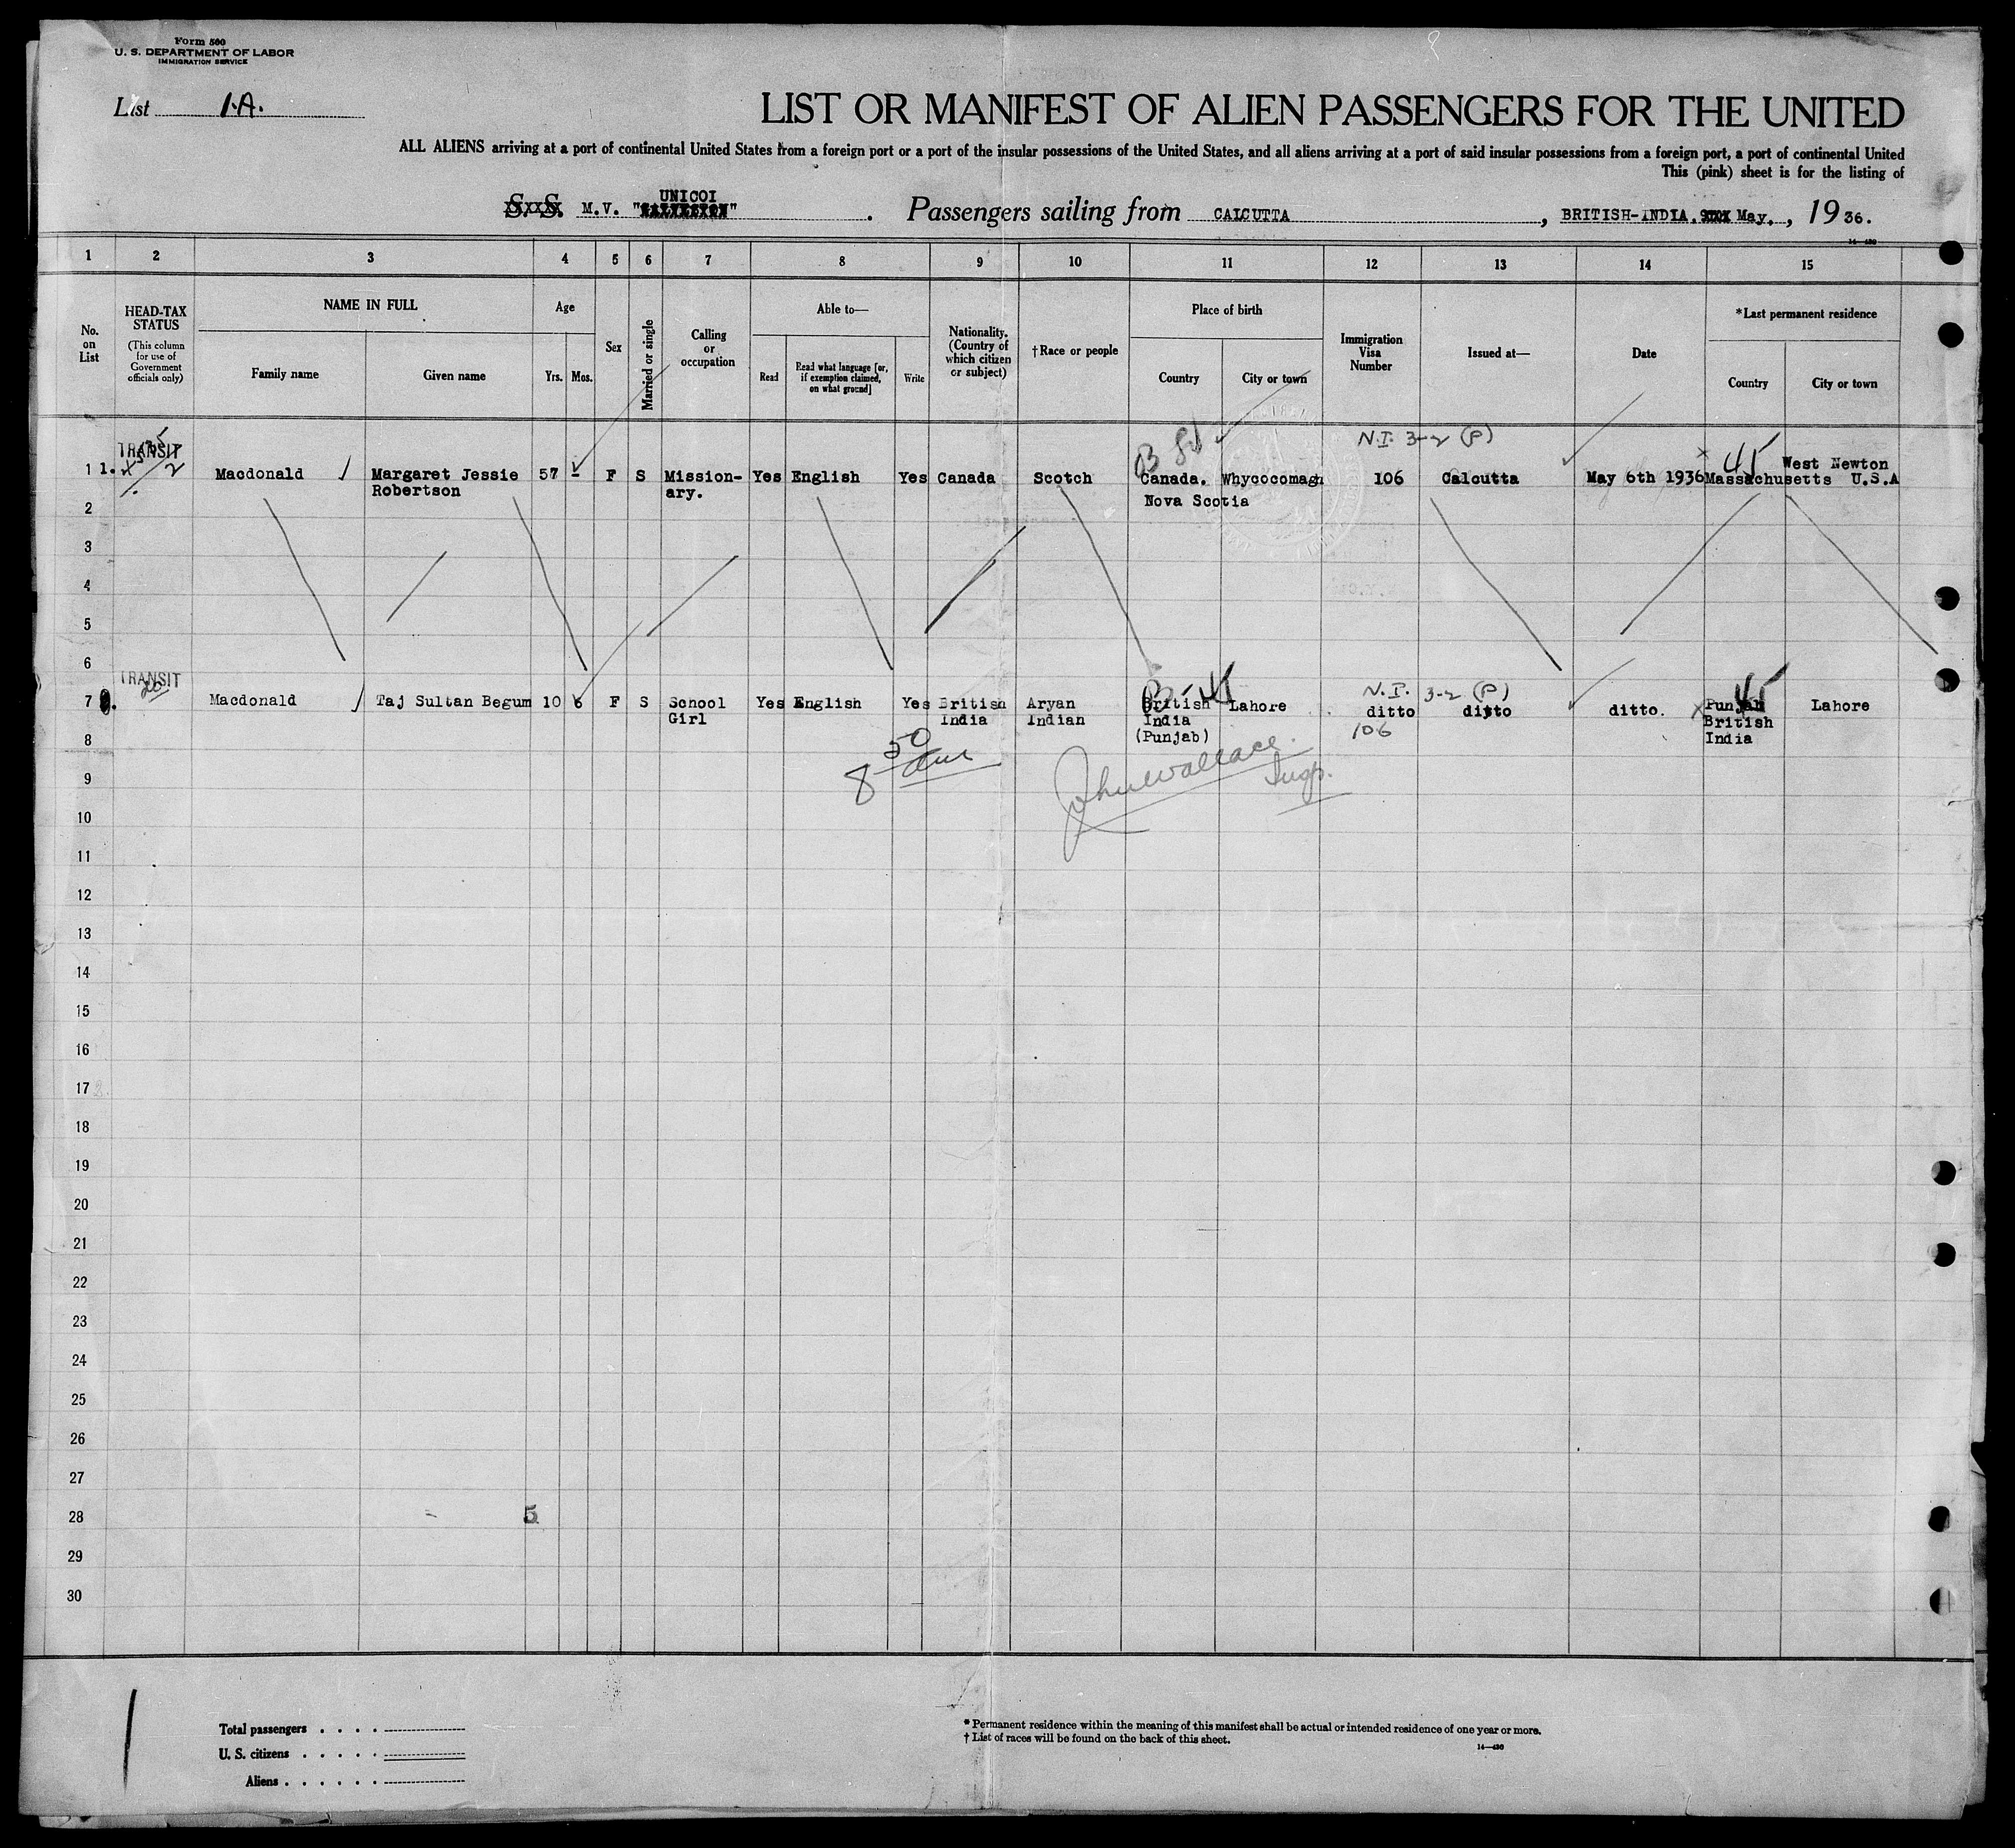 Form 500
U. S. DEPARTMENT OF LABOR
IMMIGRATION SERVICE
List 1.A.
LIST OR MANIFEST OF ALIEN PASSENGERS FOR THE UNITED
ALL ALIENS arriving at a port of continental United States from a foreign port or a port of the insular possessions of the United States, and all aliens arriving at a port of said insular possessions from a foreign port, a port of continental United
This (pink) sheet is for the listing of
UNICOI
S. S. M.V. " " . Passengers sailing from CALCUTTA , BRITISH-INDIA. May. , 19 36.
1 2 3 4 5 6 7 8 9 10 11 12 13 14 15
No. on List
HEAD-TAX STATUS
(This column for use of Government officials only)
NAME IN FULL
Family name
Given name
Age
Yrs. Mos.
Sex
Married or single
Calling or occupation
Able to—
Read
Read what language [or, if exemption claimed, on what ground]
Write
Nationality. (Country of which citizen or subject)
†Race or people
Place of birth
Country
City or town
Immigration Visa Number
Issued at—
Date
*Last permanent residence
Country
City or town
TRANSIT
N.I. 3-2 (P)
45
West Newton
1 1. Macdonald Margaret Jessie 57 - F S Mission- Yes English Yes Canada Scotch Canada. Whycocomagh 106 Calcutta May 6th 1936 Massachusetts U.S.A
Robertson ary. Nova Scotia
2
3
4
5
6
TRANSIT
20
N.I. 3-2 (P)
45
45
7 Macdonald Taj Sultan Begum 10 6 F S School Yes English Yes British Aryan British Lahore ditto ditto ditto. Punjab Lahore
Girl India Indian India 106 British
(Punjab) India
8
8 50 am
John Wallace. Insp.
9
10
11
12
13
14
15
16
17
18
19
20
21
22
23
24
25
26
27
28 5
29
30
Total passengers . . . .
U. S. citizens . . . . .
Aliens . . . . . .
* Permanent residence within the meaning of this manifest shall be actual or intended residence of one year or more.
† List of races will be found on the back of this sheet.
14—430